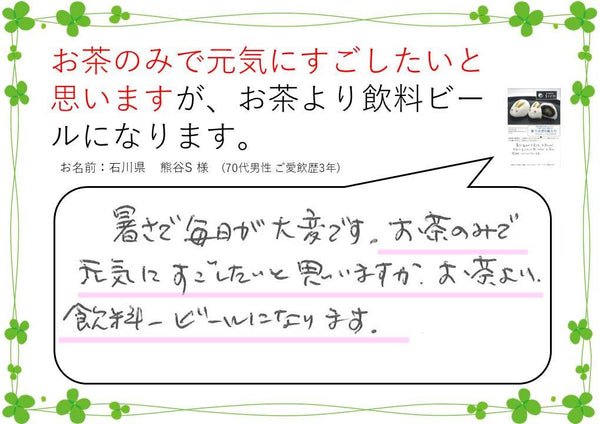 お茶のみで元気にすごしたいと
思いますが、お茶より飲料ビー
ルになります。
お名前：石川県　熊谷S 様　(70代男性 ご愛飲歴3年)
暑さで毎日が大変です。お茶のみで
元気にすごしたいと思いますが、お茶より、
飲料ービールになります。